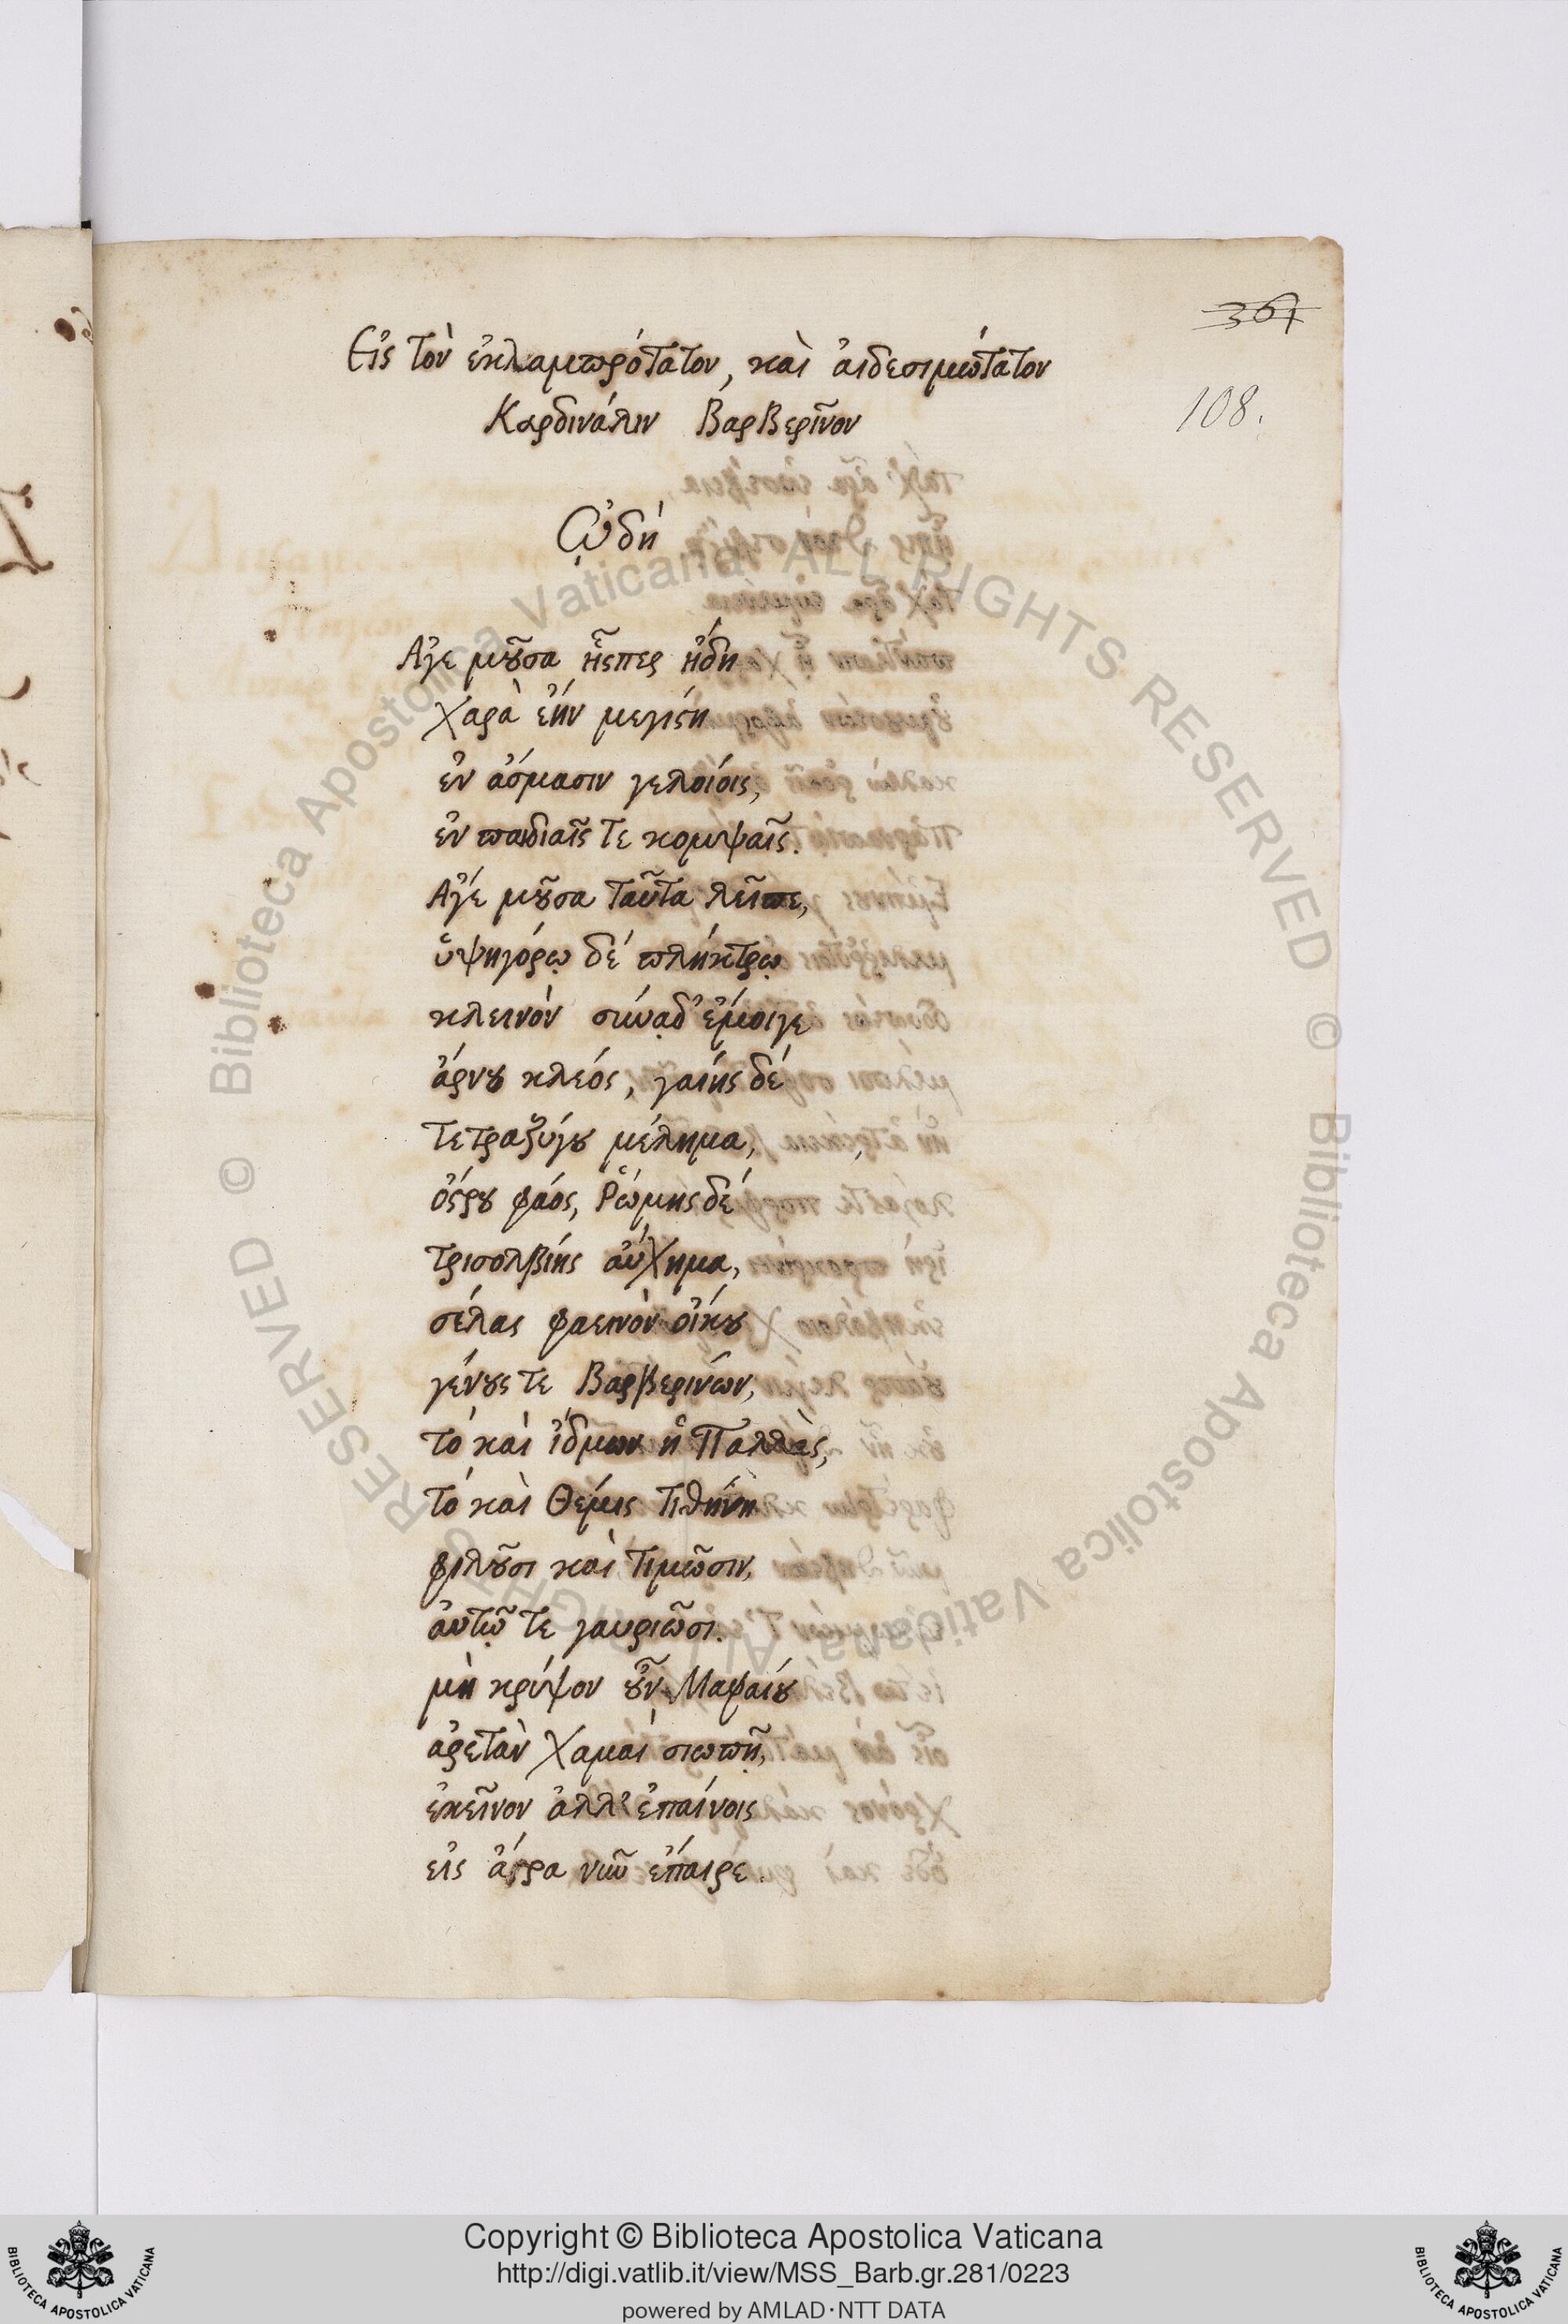 367
108.
Εἰς τὸν ἐκλαμπρότατον, καὶ ἀιδεσιμώτατον
Καρδινάλιν Βαρβερῖνον
ᾨδή
Ἄγε μοῦσα ᾗςπερ ἤδη
χαρὰ ἔην μεγίστη
ἐν ᾄσμασιν γελοίοις,
ἐν παιδιαῖς τε κομψαῖς.
Ἄγε μοῦσα ταῦτα λεῖπε,
ὑψηγόρῳ δέ πλήκτρῳ
κλεινὸν σύναδ' ἔμοιγε
ἄρνου κλέος, γαίης δέ
τετραζύγου μέλημα,
ὄστρου φάος, Ῥώμης δέ
τρισολβίης ἀύχημα,
σέλας φαεινὸν οἴκου
γένους τε Βαρβερίνων,
τό καὶ ἴδμων ἡ Παλλὰς,
τό καὶ Θέμις τιθήνη
φιλοῦσι καὶ τιμῶσιν,
ἀυτῷ τε γαυριῶσι.
μὴ κρύψον οὖν Μαφαίου
ἀρετὰν χαμαὶ σιωπῇ,
ἐκεῖνον ἀλλ' ἐπαίνοις
εἰς ἄστρα νῦν ἔπαιρε.
Copyright © Biblioteca Apostolica Vaticana
http://digi.vatlib.it/view/MSS_Barb.gr.281/0223
powered by AMLAD·NTT DATA
BIBLIOTECA APOSTOLICA VATICANA
BIBLIOTECA APOSTOLICA VATICANA
© Biblioteca Apostolica Vaticana ALL RIGHTS RESERVED © Biblioteca Apostolica Vaticana ALL RIGHTS RESERVED